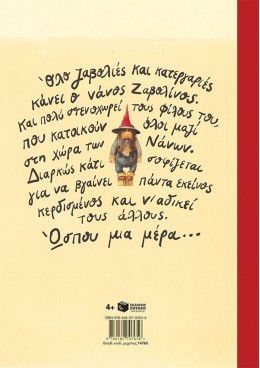 Όλο ζαβολιές και κατεργαριές
κάνει ο νάνος Ζαβολίνος.
Και πολύ στενοχωρεί τους φίλους του,
που κατοικούν όλοι μαζί
στη χώρα των Νάνων.
Διαρκώς κάτι σοφίζεται
για να βγαίνει πάντα εκείνος
κερδισμένος και ν' αδικεί
τους άλλους.
Ώσπου μια μέρα...
4+